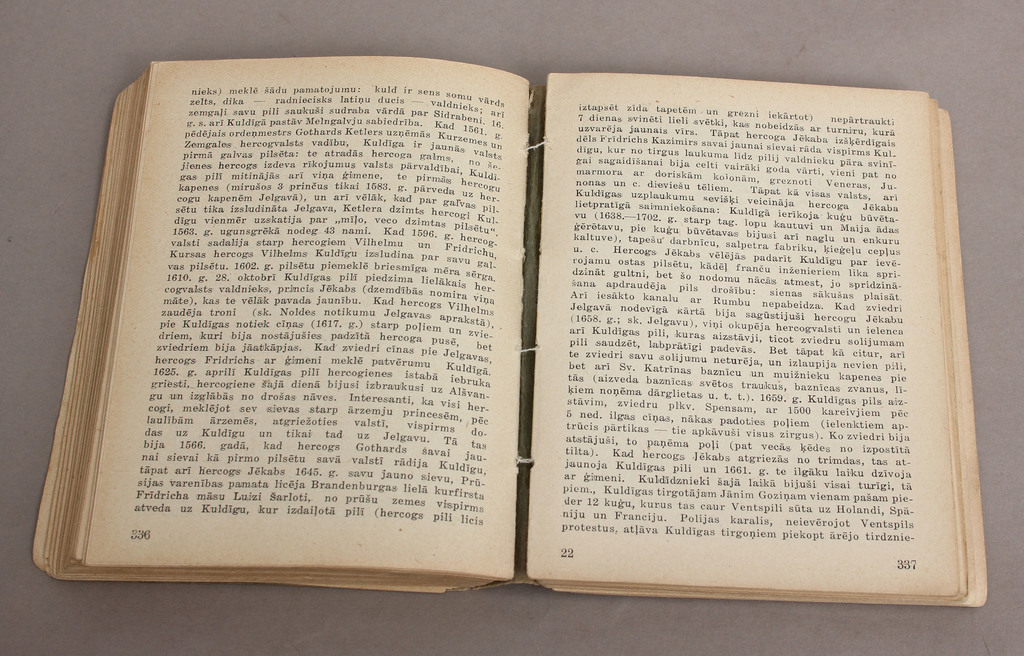 nieks) meklē šādu pamatojumu: kuld ir sens somu vārds
zelts, dika — radniecisks latiņu ducis — valdnieks; arī
zemgaļi savu pili saukuši sudraba vārdā par Sidrabeni. 16.
g. s. arī Kuldīgā pastāv Melngalvju sabiedrība. Kad 1561. g.
pēdējais ordeņmestrs Gothards Ketlers uzņēmās Kurzemes un
Zemgales hercogvalsts vadību, Kuldīga ir jaunās valsts
pirmā galvas pilsēta: te atradās hercoga galms, no še-
jienes hercogs izdeva rīkojumus valsts pārvaldībai, Kuldī-
gas pilī mitinājās arī viņa ģimene, te pirmās hercogu
kapenes (mirušos 3 prinčus tikai 1583. g. pārveda uz her-
cogu kapenēm Jelgavā), un arī vēlāk, kad par galvas pil-
sētu tika izsludināta Jelgava, Ketlera dzimts hercogi Kul-
dīgu vienmēr uzskatīja par „mīļo, veco dzimtas pilsētu“.
1563. g. ugunsgrēkā nodeg 43 nami. Kad 1596. g. hercog-
valsti sadalīja starp hercogiem Vilhelmu un Fridrichu,
Kursas hercogs Vilhelms Kuldīgu izsludina par savu gal-
vas pilsētu. 1602. g. pilsētu piemeklē briesmīga mēra sērga.
1610. g. 28. oktobrī Kuldīgas pilī piedzima lielākais her-
cogvalsts valdnieks, princis Jēkabs (dzemdībās nomira viņa
māte), kas te vēlāk pavada jaunību. Kad hercogs Vilhelms
zaudēja troni (sk. Noldes notikumu Jelgavas aprakstā),
pie Kuldīgas notiek cīņas (1617. g.) starp poļiem un zvie-
driem, kuri bija nostājušies padzītā hercoga pusē, bet
zviedriem bija jāatkāpjas. Kad zviedri cīnas pie Jelgavas,
hercogs Fridrichs ar ģimeni meklē patvērumu Kuldīgā.
1625. g. aprīlī Kuldīgas pilī hercogienes istabā iebruka
griesti, hercogiene šajā dienā bijusi izbraukusi uz Alšvan-
gu un izglābās no drošas nāves. Interesanti, ka visi her-
cogi, meklējot sev sievas starp ārzemju princesēm, pēc
laulībām ārzemēs, atgriežoties valstī, vispirms do-
das uz Kuldīgu un tikai tad uz Jelgavu. Tā tas
bija 1566. gadā, kad hercogs Gothards savai jau-
nai sievai kā pirmo pilsētu savā valstī rādīja Kuldīgu,
tāpat arī hercogs Jēkabs 1645. g. savu jauno sievu, Prū-
sijas varenības pamata licēja Brandenburgas lielā kurfirsta
Frīdricha māsu Luizi Šarloti, no prūšu zemes vispirms
atveda uz Kuldīgu, kur izdaiļotā pilī (hercogs pili licis
336
iztapsēt zīda tapetēm un grezni iekārtot) nepārtraukti
7 dienas svinēti lieli svētki, kas nobeidzās ar turnīru, kurā
uzvarēja jaunais vīrs. Tāpat hercoga Jēkaba izšķērdīgais
dēls Frīdrichs Kazimirs savai jaunai sievai rāda vispirms Kul-
dīgu, kur no tirgus laukuma līdz pilij valdnieku pāra svinī-
gai sagaidīšanai bija celti vairāki goda vārti, vieni pat no
marmora ar doriskām kolonām, greznoti Veneras, Ju-
nonas un c. dieviešu tēliem. Tāpat kā visas valsts, arī
Kuldīgas uzplaukumu sevišķi veicināja hercoga Jēkaba
lietpratīgā saimniekošana: Kuldīgā ierīkoja kuģu būvēta-
vu (1638.—1702. g. starp tag. lopu kautuvi un Maija ādas
ģērētavu, pie kuģu būvētavas bijusi arī naglu un enkuru
kaltuve), tapešu darbnīcu, salpetra fabriku, ķieģeļu cepļus
u. c. Hercogs Jēkabs vēlējās padarīt Kuldīgu par ievē-
rojamu ostas pilsētu, kādēļ franču inženieriem lika spri-
dzināt gultni, bet šo nodomu nācās atmest, jo spridzinā-
šana apdraudēja pils drošību: sienas sākušas plaisāt.
Arī iesākto kanalu ar Rumbu nepabeidza. Kad zviedri
Jelgavā nodevīgā kārtā bija sagūstījuši hercogu Jēkabu
(1658. g.; sk. Jelgavu), viņi okupēja hercogvalsti un ielenca
arī Kuldīgas pili, kuras aizstāvji, ticot zviedru solījumam
pili saudzēt, labprātīgi padevās. Bet tāpat kā citur, arī
te zviedri savu solījumu neturēja, un izlaupīja nevien pili,
bet arī Sv. Katrīnas baznīcu un muižnieku kapenes pie
tās (aizveda baznīcas svētos traukus, baznīcas zvanus, lī-
ķiem noņēma dārglietas u. t. t.). 1659. g. Kuldīgas pils aiz-
stāvim, zviedru plkv. Spensam, ar 1500 kareivjiem pēc
5 ned. ilgas cīņas, nākas padoties poļiem (ielenktiem ap-
trūcis pārtikas — tie apkāvuši visus zirgus). Ko zviedri bija
atstājuši, to paņēma poļi (pat vecās ķēdes no izpostītā
tilta). Kad hercogs Jēkabs atgriezās no trimdas, tas at-
jaunoja Kuldīgas pili un 1661. g. te ilgāku laiku dzīvoja
ar ģimeni. Kuldīdznieki šajā laikā bijuši visai turīgi, tā
piem., Kuldīgas tirgotājam Jānim Goziņam vienam pašam pie-
der 12 kuģu, kurus tas caur Ventspili sūta uz Holandi, Spā-
niju un Franciju. Polijas karalis, neievērojot Ventspils
protestus, atļāva Kuldīgas tirgoņiem piekopt ārējo tirdznie-
22
337